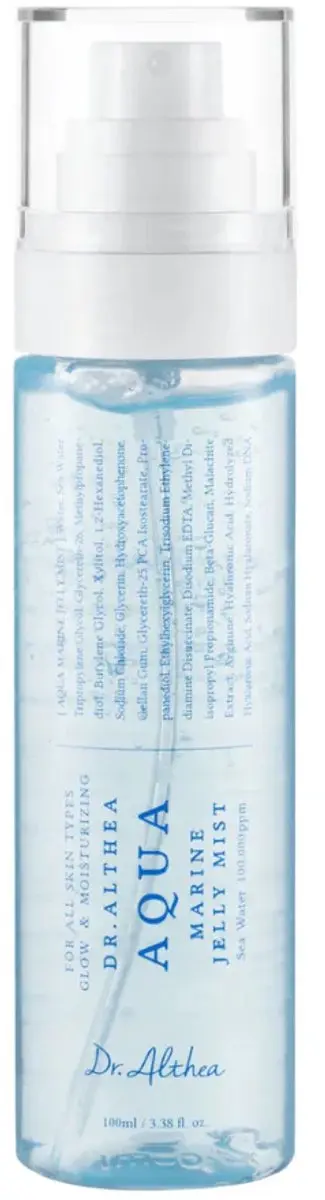 [ AQUA MARINE JELLY MIST ] Water, Sea Water
Tripropylene Glycol, Glycereth-26, Methylpropane-
diol, Butylene Glycol, Xylitol, 1,2-Hexanediol,
Sodium Chloride, Glycerin, Hydroxyacetophenone,
Gellan Gum, Glycereth-25 PCA Isostearate, Pro-
panediol, Ethylhexylglycerin, Trisodium Ethylene-
diamine Disuccinate, Disodium EDTA, Methyl Di-
isopropyl Propionamide, Beta-Glucan, Malachite
Extract, Arginine, Hyaluronic Acid, Hydrolyzed
Hyaluronic Acid, Sodium Hyaluronate, Sodium DNA
FOR ALL SKIN TYPES
GLOW & MOISTURIZING
DR.ALTHEA
AQUA
MARINE
JELLY MIST
Sea Water 100,000ppm
Dr.Althea
100ml / 3.38 fl. oz.